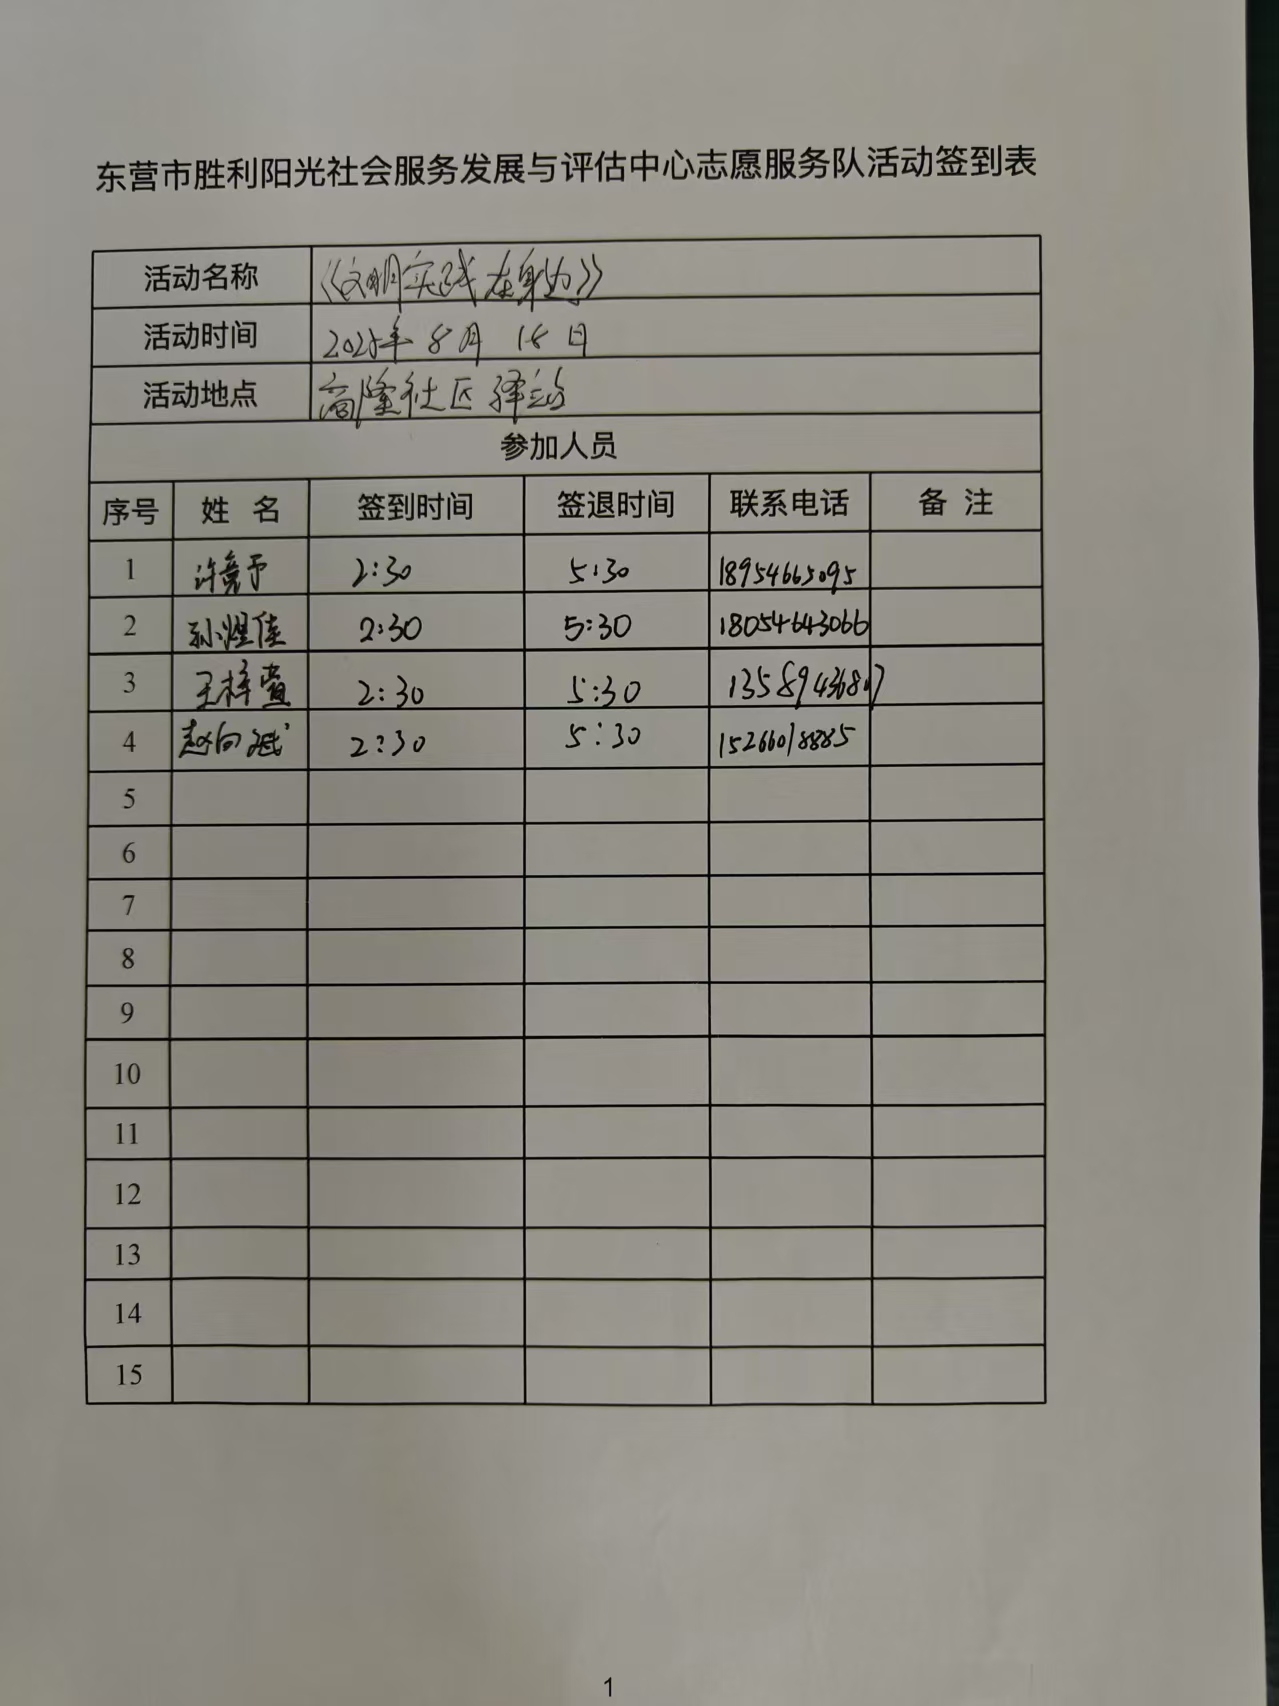 东营市胜利阳光社会服务发展与评估中心志愿服务队活动签到表
活动名称 《文明实践在身边》
活动时间 2025年8月18日
活动地点 商隆社区驿站
参加人员
序号 姓 名 签到时间 签退时间 联系电话 备 注
1 许竞予 2:30 5:30 18954665095
2 孙煜佳 2:30 5:30 18054643066
3 王梓萱 2:30 5:30 13589436807
4 赵向斌 2:30 5:30 15266018885
5
6
7
8
9
10
11
12
13
14
15
1